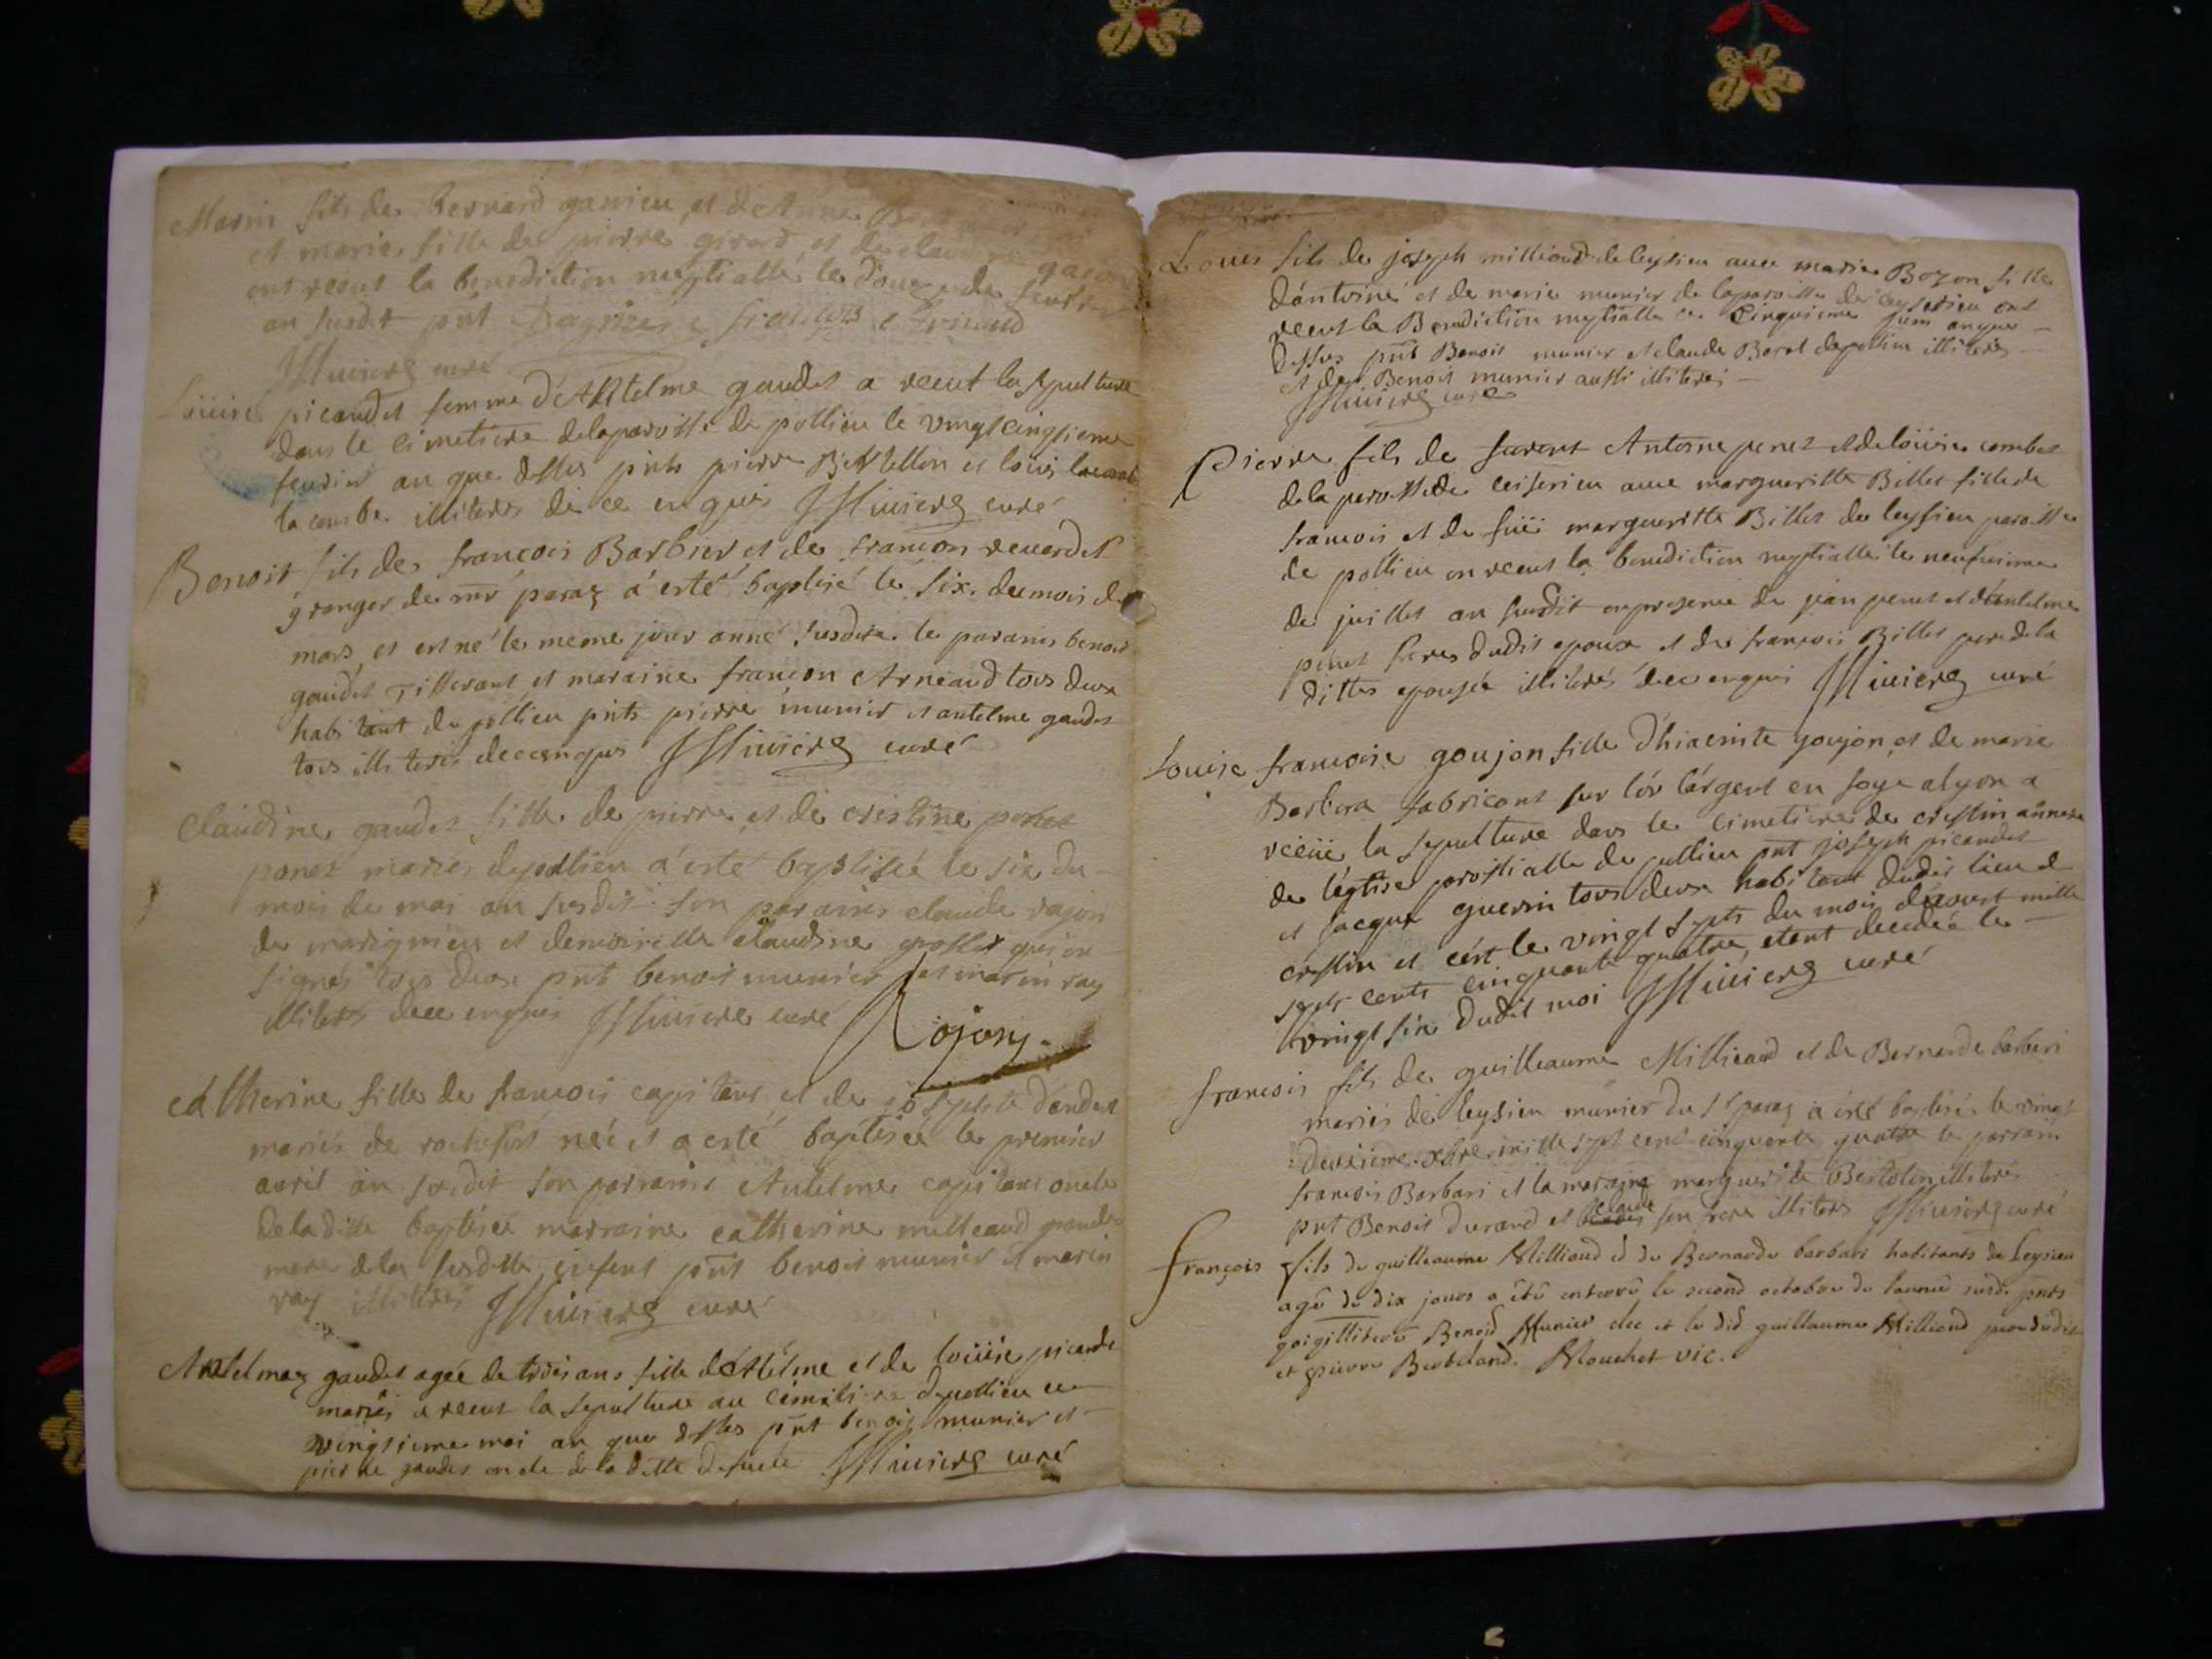 Marin fils de bernard ganieu, et de Anne
et marie fille de pierre girard et de claudine
ont receut la benediction nuptialle le douze de feuvrier
an susdit pnt francois
curé
Loüise picandet femme d'Antelme gaudet a receut la sepulture
dans le cimetiere de la paroisse de pollieu le vingt cinqsieme
feuvrier an que dessus pnts pierre Berthellon et louis
la combe illiteres de ce enquis curé
Benoit fils de francois Barbier, et de francon reuerdet
granger de mr paraz a esté baptisé le six du mois de
mars, et est né le meme jour anné susditte le parains benoit
gaudet Tisserant et maraine francon Arneaud tous deux
habitant de pollieu pnts pierre munier et antelme gaudet
tous illiterés de ce enquis curé
Claudine gaudet fille de pierre et de cristine
penet mariés de pollieu a esté baptiseé le six du
mois de mai an susdit son parains claude rajon
de marignieu et demoiselle claudine grosset qui on
signés tous deux pnt benoit munier et marin ray
illiteres de ce enquis curé Rojonj.
Catherine fille de francois capitant et de josephte dandet
mariés de rochefort neé et a esté baptiseé le premier
avril an susdit son parrains Antelme capitant oncle
de la ditte baptiseé marraine catherine milleaud grande
mere de la susditte enfent pnt benoit munier et marin
ray illiterés curé
Antelmaz gaudet ageé de trois ans fille d'Antelme et de loüise picandet
mariés a receut la sepulture au cimetiere de pollieu ce
vingtieme mai an que dessus pnt benoit munier et
pierre gaudet oncle de la ditte defunte curé
Louis fils de joseph millioud de leysieu avec marie Bozon fille
d'antoine et de marie munier de la paroisse de ceyserieu ont
receut la Benediction nuptialle ce Cinquieme juin an que
dessus pnt Benoit munier et claude Borat de pollieu illiterés
et de Benoit munier aussi illiterés
curé
Pierre fils de furent Antoine penet et de loüise combet
de la paroisse de ceiserieu avec margueritte Billet fille de
francois et de füe margueritte Billet de leysieu paroisse
de pollieu on receut la benediction nuptialle le neufvieme
de juillet an susdit en presence de jean penet et d'antelme
penet freres dudit epoux et de francois Billet pere de la
ditte epouseé illiterés de ce enquis curé
Louise francoise goujon fille d'hiacinte goujon et de marie
Barbera fabricant sur l'or l'argent en soye a lyon a
receüe la sepulture dans le cimetiere de cressin annexe
de l'eglise paroissialle de pollieu pnt joseph picandet
et jacque guerin tous deux habitant dudit lieu de
cressin et c'est le vingt septs du mois d'aoust mille
septs cents cinquante quatre, etant decedeé le
vingt six dudit moi curé
francois fils de guilleaume Millieaud et de Bernarde barbari
mariés de leysieu munier du sr paraz a esté baptisé le vingt
deuxieme 7bre mille sept cent cinquante quatre le parrain
francois Barbari et la maraine marguerite Bertolon illiterés
pnt Benoit durand et claude son frere illiteres curé
François fils de guilleaume Millioud et de Bernarde barbari habitants de Leysieu
agé de dix jours a été enterré le second octobre de l'année susd. pnts
Benoid Munier clec et le did guillaume Millioud pere dudit
et pierre Bertelland. Mouchet vic.